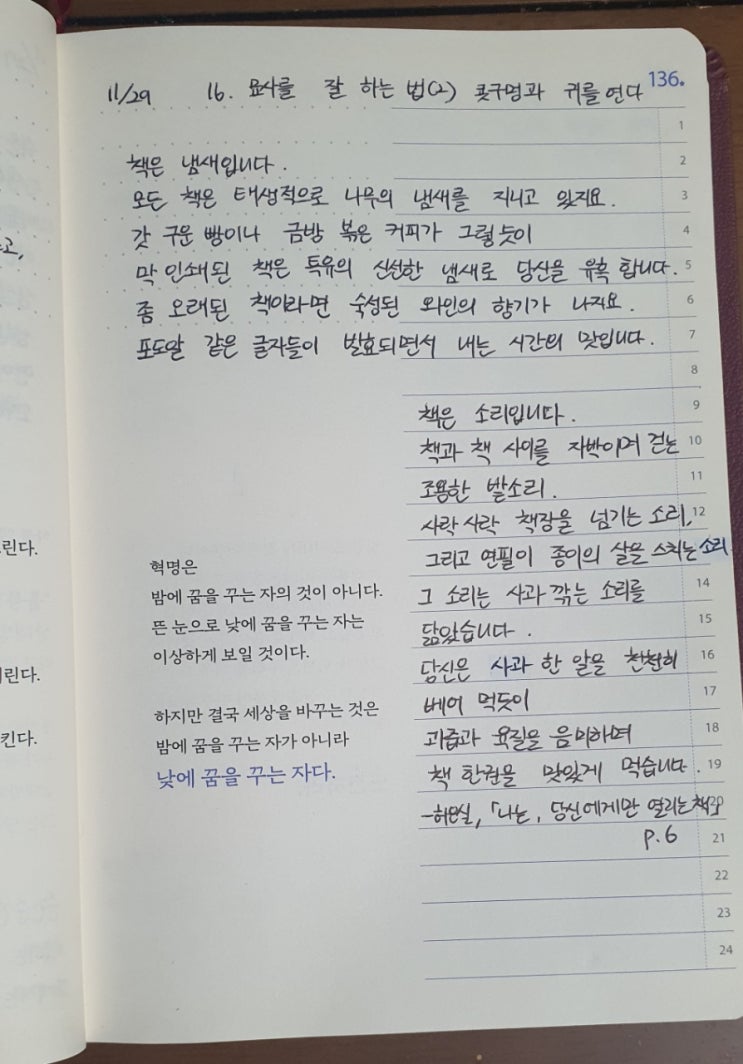 136.
11/29 16. 묘사를 잘 하는 법(2) 콧구멍과 귀를 연다
책은 냄새입니다.
모든 책은 태생적으로 나무의 냄새를 지니고 있지요.
갓 구운 빵이나 금방 볶은 커피가 그렇듯이
막 인쇄된 책은 특유의 신선한 냄새로 당신을 유혹 합니다.
좀 오래된 책이라면 숙성된 와인의 향기가 나지요.
포도알 같은 글자들이 발효되면서 내는 시간의 맛입니다.
책은 소리입니다.
책과 책 사이를 자박이며 걷는
조용한 발소리.
사락사락 책장을 넘기는 소리,
그리고 연필이 종이의 살을 스치는 소리
그 소리는 사과 깎는 소리를
닮았습니다.
당신은 사과 한 알을 천천히
베어 먹듯이
과즙과 육질을 음미하며
책 한권을 맛있게 먹습니다.
-허은실, 「나는, 당신에게만 열리는 책」
p.6
혁명은
밤에 꿈을 꾸는 자의 것이 아니다.
뜬 눈으로 낮에 꿈을 꾸는 자는
이상하게 보일 것이다.
하지만 결국 세상을 바꾸는 것은
밤에 꿈을 꾸는 자가 아니라
낮에 꿈을 꾸는 자다.
1
2
3
4
5
6
7
8
9
10
11
12
14
15
16
17
18
19
21
22
23
24
린다.
린다.
킨다.